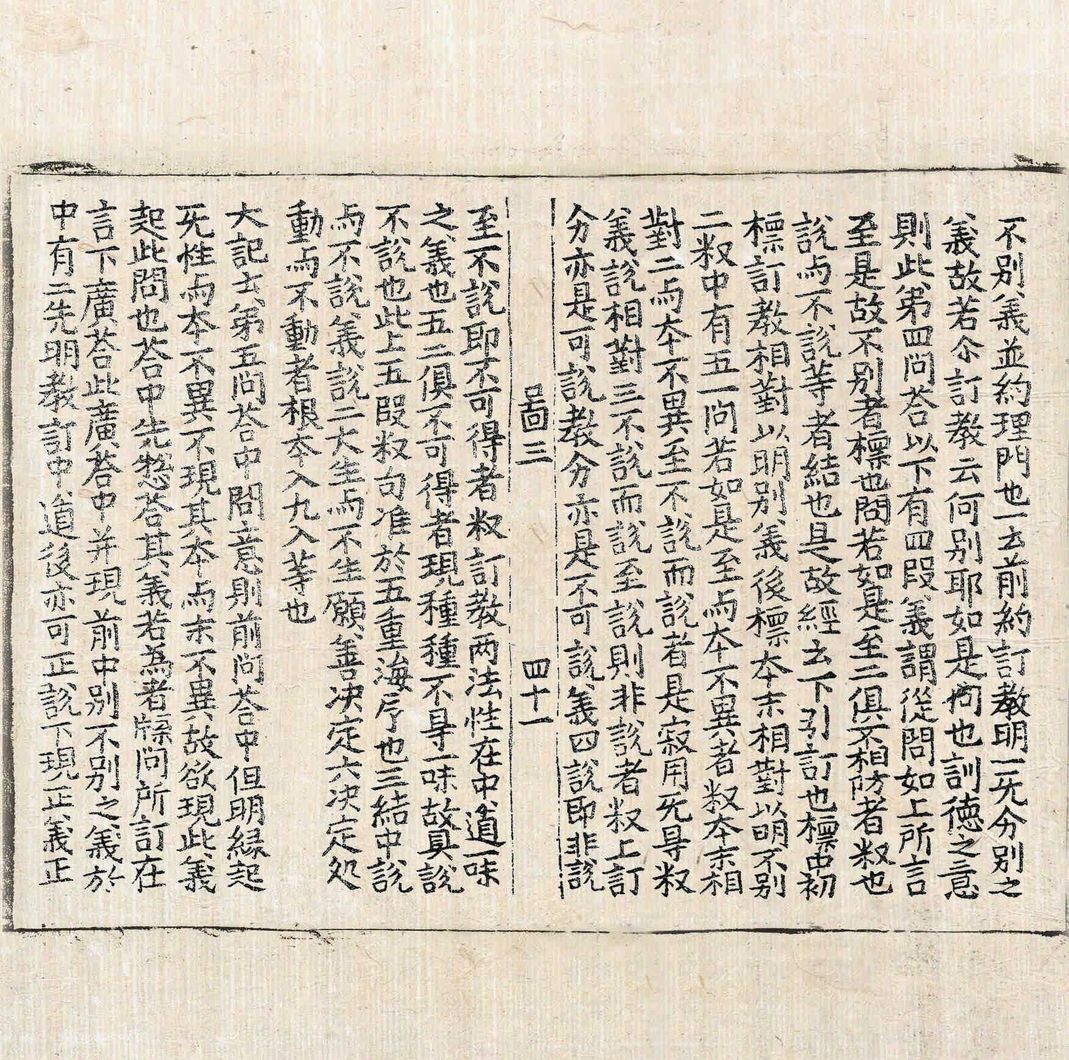 不別義並約理門也一云前約訂教明一旡分別之
義故若尒訂教云何別耶如是徇也訓德之意
則此第四問荅以下有四段義謂從問如上所言
至是故不別者標也問若如是至二俱不相防者㭊也
說与不說等者結也是故經云下引訂也標中初
標訂教相對以明別義後標夲末相對以明不別
二㭊中有五一問若如是至与夲不異者㭊夲末相
對二与夲不異至不說而說者是寂用旡㝵㭊
義說相對三不說而說至說則非說者㭊上訂
分亦是可說教分亦是不可說義四說即非說
啚三 四十一
至不說即不可得者㭊訂教两法性在中道一味
之義也五二俱不可得者現種種不㝵一味故真說
不說也此上五段㭊句准於五重海序也三結中說
与不說義說二大生与不生願善决定六决定処
動与不動者根夲入九入等也
大記云第五問荅中問意則前问荅中但明緣起
旡性与夲不異不現其夲与末不異故欲現此義
起此問也荅中先惣荅其義若為者牒问所訂在
言下廣荅此廣荅中并現前中別不別之義於
中有二先明教訂中道後亦可正說下現正義正